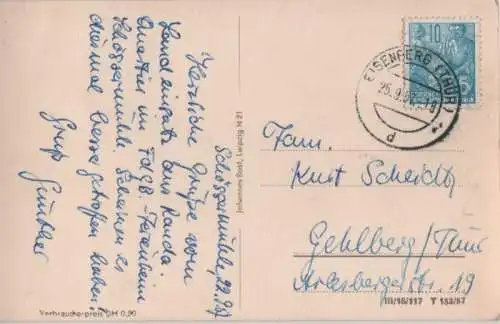 Schössermühle, 22.9.57
Herzliche Grüße vom
Landeinsatz aus Renda.
Quartier im FDGB-Ferienheim
Schössermühle. Scheinen es
diesmal besser getroffen haben.
Gruß
Günther
Johannes Straub, Verlag, Leipzig N 21
Verbraucherpreis DM 0,20
EISENBERG (THÜR)
25.9.57
d
10
Fam.
Kurt Scheidt
Gehlberg/Thür
Arlesbergerstr. 19
III/18/117 T 153/57